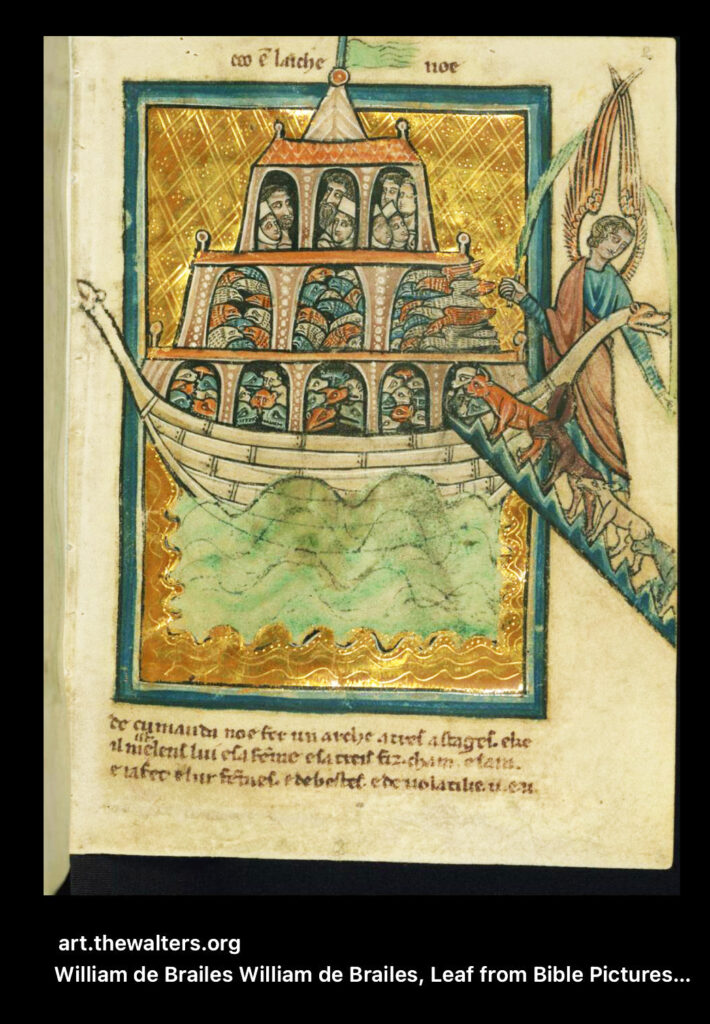 ceo ē larche noe
de cumaūdi noe fer un arche a treſ aſtageſ. e he
il miſt enſ lui e ſa fēme e ſa treiſ fiz. cham. e ſam.
e iafet e lur fēmeſ. e de beſteſ. e de uolatilie. u. e. u.
art.thewalters.org
William de Brailes William de Brailes, Leaf from Bible Pictures...